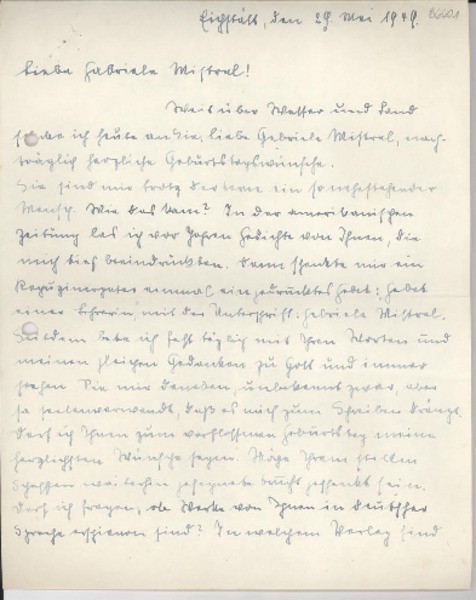 Eichstätt, den 29. Mai 1949.
Liebe Gabriele Mistral!
Weit über Wasser und Land
sende ich heute an Sie, liebe Gabriele Mistral, nach-
träglich herzliche Geburtstagswünsche.
Sie sind mir trotz der Ferne ein so nahestehender
Mensch. Wie das kam? In der amerikanischen
Zeitung las ich vor Jahren Gedichte von Ihnen, die
mich tief beeindruckten. Dann schenkte mir ein
Kapuzinerpater einmal ein gedrucktes Gebet: Gebet
einer Lehrerin, mit der Unterschrift: Gabriele Mistral.
Seitdem bete ich fast täglich mit Ihren Worten und
meinen gleichen Gedanken zu Gott und immer
stehen Sie mir daneben, unbekannt zwar, aber
so seelenverwandt, daß es mich zum Schreiben drängt.
Darf ich Ihnen zum verflossenen Geburtstag meine
herzlichsten Wünsche sagen. Möge Ihrem stillen
Schaffen weiterhin gesegnete Frucht geschenkt sein.
Darf ich fragen, ob Werke von Ihnen in deutscher
Sprache erschienen sind? In welchem Verlag sind